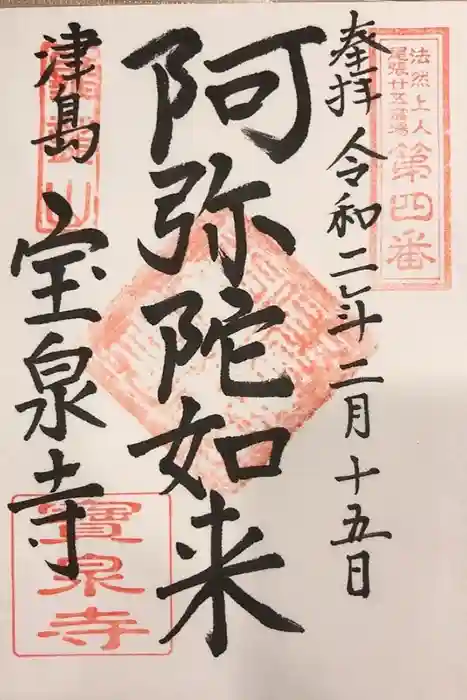 法然上人
尾張廿五霊場
第四番
奉拝 令和二年二月十五日
阿弥陀如来
津島 宝泉寺
寶泉寺